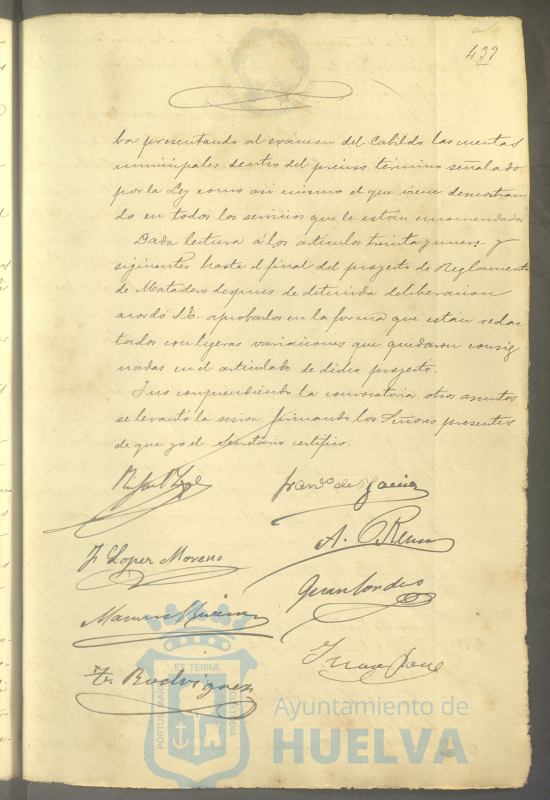 439
ba presentando al exámen del Cabildo las cuentas
municipales dentro del preciso término señalado
por la Ley como asi mismo el que viene demostran
do en todos los servicios que le están encomendados
Dada lectura á los artículos treinta y nueve y
siguientes hasta el final del proyecto de Reglamento
de Matadero despues de detenida deliberacion
acordó S.E. aprobarlos en la forma que están redac
tados con ligeras variaciones que quedaron consig
nadas en el articulado de dicho proyecto.
Y no comprendiendo la convocatoria otros asuntos
se levantó la sesion firmando los Señores presentes
de que yo el Secretario certifico.
Franco de
J. Lopez Moreno
A.
Manuel
Juan
Rodriguez
PORTUS MARIS ET TERRÆ CUSTODIA
Ayuntamiento de
HUELVA